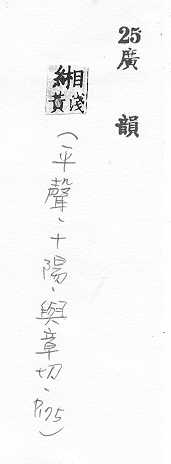 25廣韻
緗淺黃
(平聲、十陽、與章切、P.175)